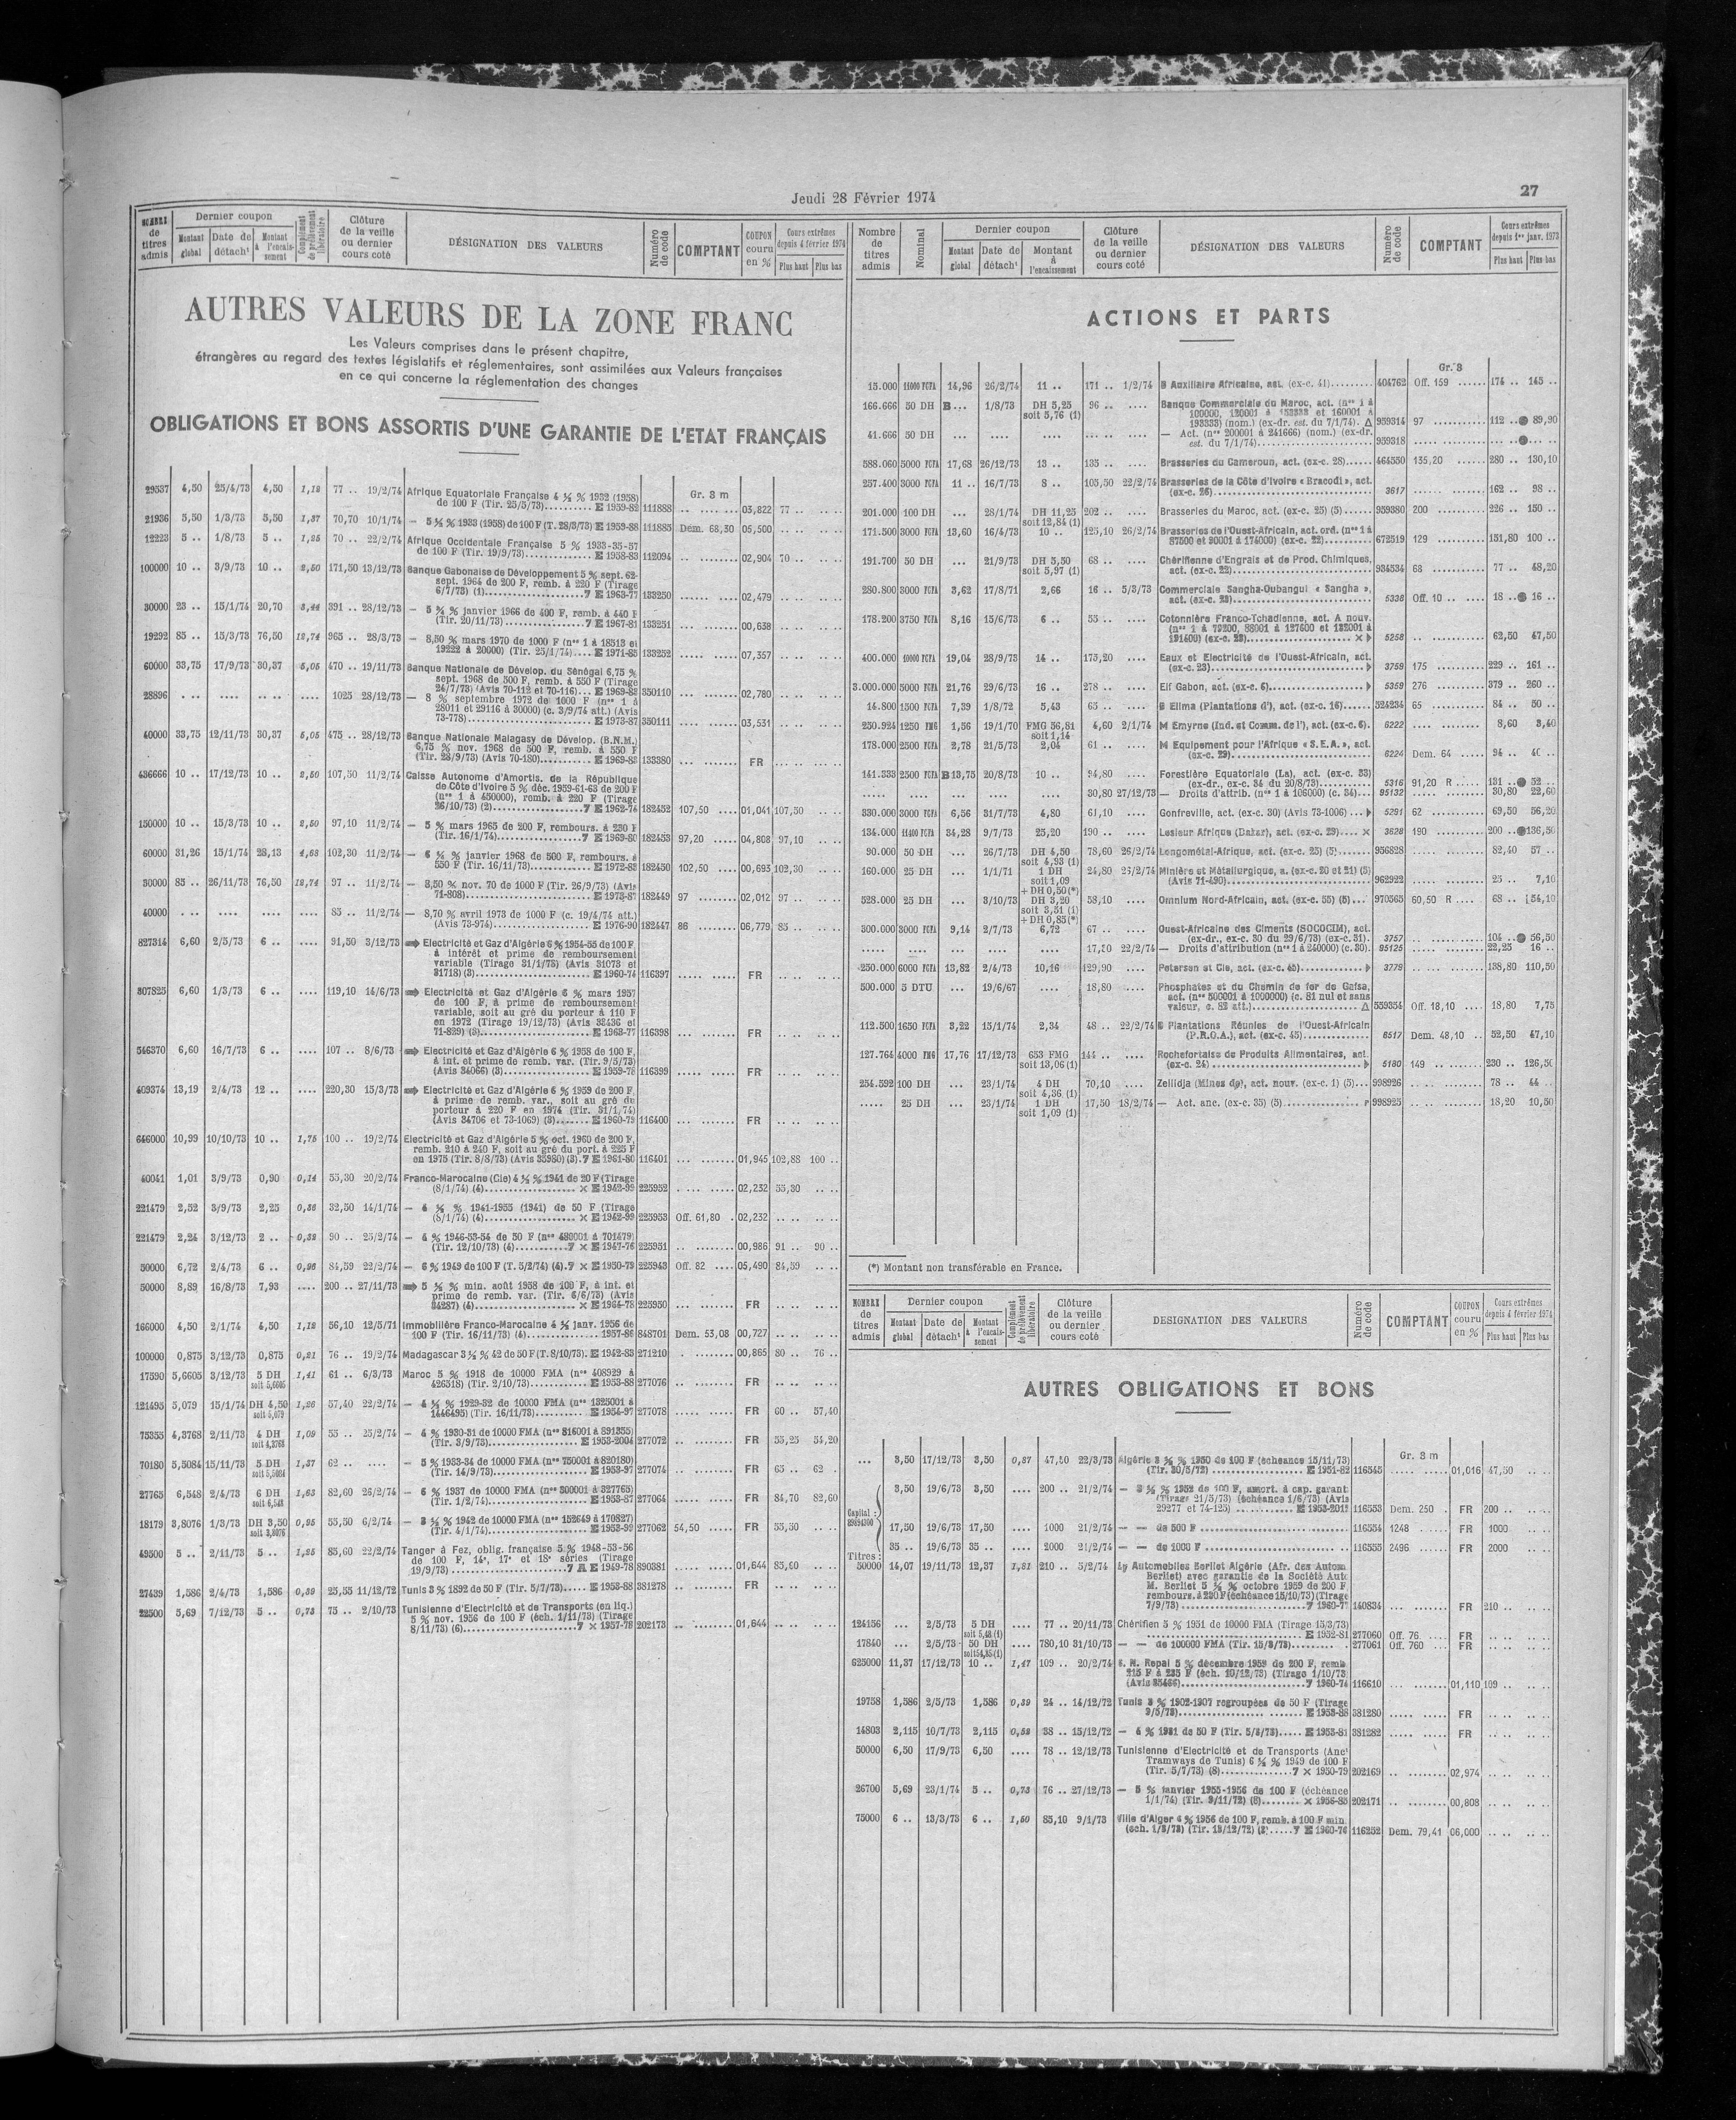 Jeudi 28 Février 1974
27
AUTRES VALEURS DE LA ZONE FRANC
Les Valeurs comprises dans le présent chapitre,
étrangères au regard des textes législatifs et réglementaires, sont assimilées aux Valeurs françaises
en ce qui concerne la réglementation des changes
OBLIGATIONS ET BONS ASSORTIS D'UNE GARANTIE DE L'ETAT FRANÇAIS
Dernier coupon
Clôture
de la veille
ou dernier
cours coté
DÉSIGNATION DES VALEURS
Numéro de code
COMPTANT
COUPON couru en %
Cours extrêmes depuis 4 février 1974
Plus haut Plus bas
Gr. 3 m
29537 4,50 25/4/73 4,50 77 .. 19/2/74 Afrique Equatoriale Française
de 100 F (Tir. 25/5/73) E 1959-82 111888 03,822 77 ..
21936 5,50 1/3/73 5,50 1,37 70,70 10/1/74 111885 Dem. 68,30 05,500
12223 5 .. 1/8/73 5 .. 70 .. 22/2/74 Afrique Occidentale Française 5 % 1933-35-57
de 100 F (Tir. 19/9/73) E 1958-83 112094 02,904 70 ..
100000 10 .. 3/9/73 10 .. 2,50 171,50 13/12/73 Banque Gabonaise de Développement 5 % sept. 62-
sept. 1964 de 200 F, remb. à 220 F (Tirage
6/7/73) (1) 7 E 1963-77 133250 02,479
30000 23 .. 15/1/74 20,70 391 .. 28/12/73 janvier 1966 de 400 F, remb. à 440 F
(Tir. 20/11/73) 7 E 1967-81 133251 00,638
19292 85 .. 15/3/73 76,50 12,74 965 .. 28/3/73 — 8,50 % mars 1970 de 1000 F (nos 1 à 18513 et
19222 à 20000) (Tir. 25/1/74) E 1971-85 133252 07,357
60000 33,75 17/9/73 30,37 5,05 470 .. 19/11/73 Banque Nationale de Dévelop. du Sénégal 6,75 %
sept. 1968 de 500 F, remb. à 550 F (Tirage
24/7/73) (Avis 70-112 et 70-116) E 1969-83 350110 02,780
28896 1025 28/12/73 — 8 % septembre 1972 de 1000 F (nos 1 à
28011 et 29116 à 30000) (c. 3/9/74 att.) (Avis
73-778) E 1973-87 350111 03,531
40000 33,75 12/11/73 30,37 5,05 475 .. 28/12/73 Banque Nationale Malagasy de Dévelop. (B.N.M.)
6,75 % nov. 1968 de 500 F, remb. à 550 F
(Tir. 28/9/73) (Avis 70-180) E 1969-83 133380 FR
436666 10 .. 17/12/73 10 .. 2,50 107,50 11/2/74 Caisse Autonome d'Amortis. de la République
de Côte d'Ivoire 5 % déc. 1959-61-63 de 200 F
(nos 1 à 450000), remb. à 220 F (Tirage
26/10/73) (2) 7 E 1962-74 182452 107,50 01,041 107,50
150000 10 .. 15/3/73 10 .. 2,50 97,10 11/2/74 — 5 % mars 1965 de 200 F, rembours. à 230 F
(Tir. 16/1/74) 7 E 1969-80 182453 97,20 04,808 97,10
60000 31,26 15/1/74 28,13 4,68 102,30 11/2/74 janvier 1968 de 500 F, rembours. à
550 F (Tir. 16/11/73) E 1972-83 182450 102,50 00,693 102,30
30000 85 .. 26/11/73 76,50 12,74 97 .. 11/2/74 — 8,50 % nov. 70 de 1000 F (Tir. 26/9/73) (Avis
71-808) E 1973-87 182449 97 02,012 97 ..
40000 85 .. 11/2/74 — 8,70 % avril 1973 de 1000 F (c. 19/4/74 att.)
(Avis 73-974) E 1976-90 182447 86 06,779 85 ..
827314 6,60 2/5/73 6 .. 91,50 3/12/73 Electricité et Gaz d'Algérie 6 % 1954-55 de 100 F,
à intérêt et prime de remboursement
variable (Tirage 31/1/73) (Avis 31073 et
31718) (3) E 1960-74 116397 FR
807825 6,60 1/3/73 6 .. 119,10 14/6/73 Electricité et Gaz d'Algérie 6 % mars 1957
de 100 F, à prime de remboursement
variable, soit au gré du porteur à 110 F
en 1972 (Tirage 19/12/73) (Avis 32436 et
71-829) (3) E 1963-77 116398 FR
546370 6,60 16/7/73 6 .. 107 .. 8/6/73 Electricité et Gaz d'Algérie 6 % 1958 de 100 F,
à int. et prime de remb. var. (Tir. 9/5/73)
(Avis 34066) (3) E 1959-78 116399 FR
409374 13,19 2/4/73 12 .. 220,30 15/3/73 Electricité et Gaz d'Algérie 6 % 1959 de 200 F,
à prime de remb. var., soit au gré du
porteur à 220 F en 1974 (Tir. 31/1/74)
(Avis 34706 et 73-1069) (3) E 1960-79 116400 FR
646000 10,99 10/10/73 10 .. 1,75 100 .. 19/2/74 Electricité et Gaz d'Algérie 5 % oct. 1960 de 200 F,
remb. 210 à 240 F, soit au gré du port. à 225 F
en 1975 (Tir. 8/8/73) (Avis 35980) (3). 7 E 1961-80 116401 01,945 102,88 100 ..
40041 1,01 3/9/73 0,90 0,14 55,30 20/2/74 Franco-Marocaine (Cie) 1941 de 20 F (Tirage
(8/1/74) (4) × E 1942-99 225952 02,232 55,30
221479 2,52 3/9/73 2,25 0,36 32,50 14/1/74 1941-1955 (1941) de 50 F (Tirage
(8/1/74) (4) × E 1942-99 225953 Off. 61,80 02,232
221479 2,24 3/12/73 2 .. 0,32 90 .. 25/2/74 — 4 % 1946-53-54 de 50 F (nos 480001 à 701479)
(Tir. 12/10/73) (4) 7 × E 1947-76 225951 00,986 91 .. 90 ..
50000 6,72 2/4/73 6 .. 0,96 84,59 22/2/74 — 6 % 1949 de 100 F (T. 5/2/74) (4). 7 × E 1950-79 225943 Off. 82 05,490 84,59
50000 8,89 16/8/73 7,93 200 .. 27/11/73 min. août 1958 de 100 F, à int. et
prime de remb. var. (Tir. 6/6/73) (Avis
34287) (4) × E 1964-78 225950 FR
166000 4,50 2/1/74 4,50 56,10 12/5/71 Immobilière Franco-Marocaine janv. 1956 de
100 F (Tir. 16/11/73) (4) 1957-86 848701 Dem. 53,08 00,727
100000 0,875 3/12/73 0,875 0,21 76 .. 19/2/74 Madagascar 42 de 50 F (T. 8/10/73). E 1942-83 271210 00,865 80 .. 76 ..
17590 5,6605 3/12/73 5 DH soit 5,6605 1,41 61 .. 6/3/73 Maroc 5 % 1918 de 10000 FMA (nos 408929 à
426518) (Tir. 2/10/73) E 1953-88 277076 FR
121495 5,079 15/1/74 DH 4,50 soit 5,079 1,26 57,40 22/2/74 1929-32 de 10000 FMA (nos 1325001 à
1446495) (Tir. 16/11/73) E 1954-97 277078 FR 60 .. 57,40
75355 4,3768 2/11/73 4 DH soit 4,3768 1,09 55 .. 25/2/74 — 4 % 1930-31 de 10000 FMA (nos 816001 à 891355)
(Tir. 3/9/73) E 1953-2004 277072 FR 55,25 54,20
70180 5,5084 15/11/73 5 DH soit 5,5084 1,37 62 .. — 5 % 1933-34 de 10000 FMA (nos 750001 à 820180)
(Tir. 14/9/73) E 1953-97 277074 FR 65 .. 62 ..
27765 6,548 2/4/73 6 DH soit 6,548 1,63 82,60 26/2/74 — 6 % 1937 de 10000 FMA (nos 300001 à 327765)
(Tir. 1/2/74) E 1953-87 277064 FR 84,70 82,60
18179 3,8076 1/3/73 DH 3,50 soit 3,8076 0,95 55,50 6/2/74 1942 de 10000 FMA (nos 152649 à 170827)
(Tir. 4/1/74) E 1953-99 277062 54,50 FR 55,50
49500 5 .. 2/11/73 5 .. 85,60 22/2/74 Tanger à Fez, oblig. française 5 % 1948-53-56
de 100 F, 14e, 17e et 18e séries (Tirage
19/9/73) E 1949-78 890381 01,644 85,60
27439 1,586 2/4/73 1,586 0,39 25,55 11/12/72 Tunis 3 % 1892 de 50 F (Tir. 5/7/73) E 1953-88 381278 FR
22500 5,69 7/12/73 5 .. 0,73 75 .. 2/10/73 Tunisienne d'Electricité et de Transports (en liq.)
5 % nov. 1956 de 100 F (éch. 1/11/73) (Tirage
8/11/73) (6) 7 × 1957-78 202173 01,644
Nombre de titres admis
Nominal
Dernier coupon
Montant global
Date de détacht
Montant à l'encaissement
Clôture de la veille ou dernier cours coté
DÉSIGNATION DES VALEURS
Numéro de code
COMPTANT
Cours extrêmes depuis 1er janv. 1973
Plus haut Plus bas
ACTIONS ET PARTS
Gr. 8
15.000 11000 FCFA 14,96 26/2/74 11 .. 171 .. 1/2/74 Auxiliaire Africaine, act. (ex-c. 41) 404762 Off. 159 174 .. 145 ..
166.666 50 DH B 1/8/73 DH 5,25 soit 5,76 (1) 96 .. Banque Commerciale du Maroc, act. (nos 1 à
100000, 130001 à 153333 et 160001 à
193333) (nom.) (ex-dr. est. du 7/1/74). Δ 959314 97 112 .. 89,90
41.666 50 DH — Act. (nos 200001 à 241666) (nom.) (ex-dr.
est. du 7/1/74) 959318
588.060 5000 FCFA 17,68 26/12/73 13 .. 135 .. Brasseries du Cameroun, act. (ex-c. 28) 464550 135,20 280 .. 130,10
257.400 3000 FCFA 11 .. 16/7/73 8 .. 105,50 22/2/74 Brasseries de la Côte d'Ivoire « Bracodi », act.
(ex-c. 26) 3617 162 .. 98 ..
201.000 100 DH 28/1/74 DH 11,25 soit 12,84 (1) 202 .. Brasseries du Maroc, act. (ex-c. 25) (5) 959380 200 226 .. 150 ..
171.500 3000 FCFA 13,60 16/4/73 10 .. 125,10 26/2/74 Brasseries de l'Ouest-Africain, act. ord. (nos 1 à
87500 et 90001 à 174000) (ex-c. 22) 672519 129 151,80 100 ..
191.700 50 DH 21/9/73 DH 5,50 soit 5,97 (1) 68 .. Chérifienne d'Engrais et de Prod. Chimiques,
act. (ex-c. 22) 934534 68 77 .. 48,20
280.800 3000 FCFA 3,62 17/8/71 2,66 16 .. 5/3/73 Commerciale Sangha-Oubangui « Sangha »,
act. (ex-c. 23) 5336 Off. 10 .. 18 .. 16 ..
178.200 3750 FCFA 8,16 15/6/73 6 .. 55 .. Cotonnière Franco-Tchadienne, act. A nouv.
(nos 1 à 79200, 88001 à 127600 et 132001 à
191400) (ex-c. 22) 5258 62,50 47,50
400.000 10000 FCFA 19,04 28/9/73 14 .. 175,20 Eaux et Electricité de l'Ouest-Africain, act.
(ex-c. 23) 3759 175 229 .. 161 ..
3.000.000 5000 FCFA 21,76 29/6/73 16 .. 278 .. Elf Gabon, act. (ex-c. 6) 5359 276 379 .. 260 ..
14.800 1500 FCFA 7,39 1/8/72 5,43 65 .. Elima (Plantations d'), act. (ex-c. 16) 524234 65 84 .. 50 ..
250.924 1250 FMG 1,56 19/1/70 FMG 56,81 soit 1,14 4,60 2/1/74 M Emyrne (Ind. et Comm. de l'), act. (ex-c. 6). 6222 8,60 3,40
178.000 2500 FCFA 2,78 21/5/73 2,04 61 .. M Equipement pour l'Afrique « S.E.A. », act.
(ex-c. 29) 6224 Dem. 64 94 ..
141.333 2500 FCFA B 13,75 20/8/73 10 .. 94,80 Forestière Equatoriale (La), act. (ex-c. 33)
(ex-dr., ex-c. 34 du 20/8/73) 5316 91,20 R 131 .. 52 ..
30,80 27/12/73 — Droits d'attrib. (nos 1 à 106000) (c. 34) 95132 30,80 22,60
330.000 3000 FCFA 6,56 31/7/73 4,80 61,10 Gonfreville, act. (ex-c. 30) (Avis 73-1006) 5291 62 69,50 56,20
134.000 11400 FCFA 34,28 9/7/73 25,20 190 .. Lesieur Afrique (Dakar), act. (ex-c. 29) × 3628 190 200 .. 136,50
90.000 50 DH 26/7/73 DH 4,50 soit 4,93 (1) 78,60 26/2/74 Longométal-Afrique, act. (ex-c. 25) (5) 956828 82,40 57 ..
160.000 25 DH 1/1/71 1 DH soit 1,09 + DH 0,50 (*) 24,80 26/2/74 Minière et Métallurgique, a. (ex-c. 20 et 21) (5)
(Avis 71-490) 962922 25 .. 7,10
528.000 25 DH 3/10/73 DH 3,20 soit 3,51 (1) + DH 0,85 (*) 58,10 Omnium Nord-Africain, act. (ex-c. 55) (5) 970565 60,50 R 68 .. 54,10
300.000 3000 FCFA 9,14 2/7/73 6,72 67 .. Ouest-Africaine des Ciments (SOCOCIM), act.
(ex-dr., ex-c. 30 du 29/6/73) (ex-c. 31). 3757 104 .. 56,50
17,50 22/2/74 — Droits d'attribution (nos 1 à 240000) (c. 30). 95125 22,25 16 ..
250.000 6000 FCFA 13,82 2/4/73 10,16 129,90 Peterson et Cie, act. 3779 138,80 110,50
500.000 5 DTU 19/6/67 18,80 Phosphates et du Chemin de fer de Gafsa,
act. (nos 500001 à 1000000) (c. 81 nul et sans
valeur, c. 82 att.) Δ 559354 Off. 18,10 18,80 7,75
112.500 1650 FCFA 3,22 15/1/74 2,34 48 .. 22/2/74 Plantations Réunies de l'Ouest-Africain
(P.R.O.A.), act. (ex-c. 45) 6517 Dem. 48,10 52,50 47,10
127.764 4000 FMG 17,76 17/12/73 653 FMG soit 13,06 (1) 144 .. Rochefortaise de Produits Alimentaires, act.
(ex-c. 24) 5180 149 230 .. 126,50
254.592 100 DH 23/1/74 4 DH soit 4,36 (1) 70,10 Zellidja (Mines de), act. nouv. (ex-c. 1) (5) 998926 78 .. 44 ..
25 DH 23/1/74 1 DH soit 1,09 (1) 17,50 18/2/74 — Act. anc. (ex-c. 35) (5) 998925 18,20 10,50
(*) Montant non transférable en France.
NOMBRE de titres admis
Dernier coupon
Montant global
Date de détacht
Montant à l'encaissement
Complément de prélèvement libératoire
Clôture de la veille ou dernier cours coté
DESIGNATION DES VALEURS
Numéro de code
COMPTANT
COUPON couru en %
Cours extrêmes depuis 4 février 1974
Plus haut Plus bas
AUTRES OBLIGATIONS ET BONS
Gr. 3 m
3,50 17/12/73 3,50 0,87 47,50 22/3/73 Algérie 1950 de 100 F (échéance 15/11/73)
(Tir. 30/5/72) E 1951-82 116545 01,016 47,50
Capital :
3,50 19/6/73 3,50 200 .. 21/2/74 1952 de 100 F, amort. à cap. garant
(Tirage 21/5/73) (échéance 1/6/73) (Avis
29277 et 74-125) E 1953-2012 116553 Dem. 250 FR 200 ..
17,50 19/6/73 17,50 1000 21/2/74 — — de 500 F 116554 1248 FR 1000
35 .. 19/6/73 35 .. 2000 21/2/74 — — de 1000 F 116555 2496 FR 2000
Titres :
50000 14,07 19/11/73 12,37 1,81 210 .. 5/2/74 Automobiles Berliet Algérie (Afr. des Autom.
Berliet) avec garantie de la Société Aut.
M. Berliet octobre 1959 de 200 F,
rembours. à 230 F (échéance 15/10/73) (Tirage
7/9/73) 7 1960-77 140834 FR 210 ..
124156 2/5/73 5 DH soit 5,48 (1) 77 .. 20/11/73 Chérifien 5 % 1951 de 10000 FMA (Tirage 15/3/73)
E 1952-81 277060 Off. 76 FR
17840 2/5/73 50 DH soit 54,85 (1) 780,10 31/10/73 — — de 100000 FMA (Tir. 15/3/73) 277061 Off. 760 FR
625000 11,37 17/12/73 10 .. 1,47 109 .. 20/2/74 S. N. Repal 5 % décembre 1959 de 200 F, remb.
215 F à 235 F (éch. 10/12/73) (Tirage 1/10/73)
(Avis 35486) 7 1960-74 116610 01,110 109 ..
19758 1,586 2/5/73 1,586 0,39 24 .. 14/12/72 Tunis 3 % 1902-1907 regroupées de 50 F (Tirage
9/5/73) E 1953-88 381280 FR
14803 2,115 10/7/73 2,115 0,52 38 .. 15/12/72 — 4 % 1931 de 50 F (Tir. 5/3/73) E 1953-81 381282 FR
50000 6,50 17/9/73 6,50 78 .. 12/12/73 Tunisienne d'Electricité et de Transports (Anct
Tramways de Tunis) 1949 de 100 F
(Tir. 5/7/73) (8) 7 × 1950-79 202169 02,974
26700 5,69 23/1/74 5 .. 0,73 76 .. 27/12/73 — 5 % janvier 1955-1956 de 100 F (échéance
1/1/74) (Tir. 9/11/72) (6) × 1956-85 202171 00,808
75000 6 .. 13/3/73 6 .. 1,50 85,10 9/1/73 Ville d'Alger 1956 de 100 F, remb. à 100 F min.
(éch. 1/3/73) (Tir. 15/12/72) 7 E 1960-76 116252 Dem. 79,41 06,000